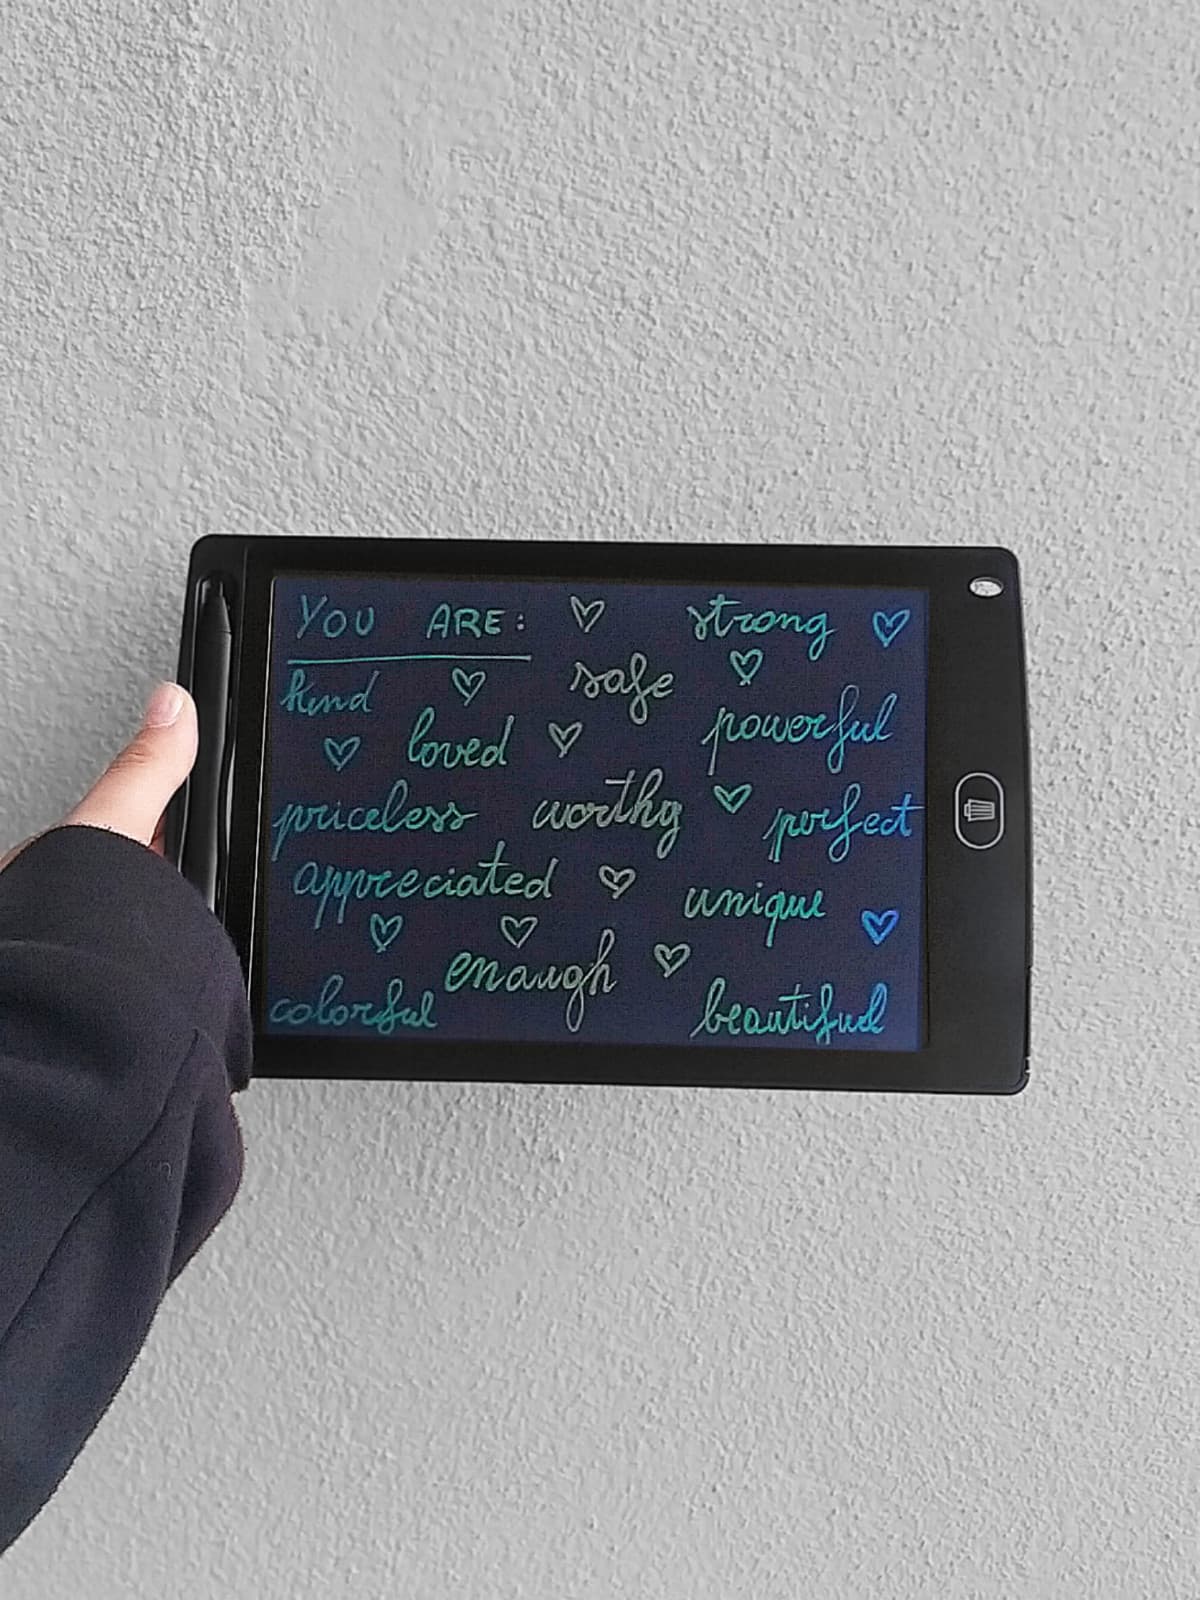 YOU ARE: ♡ strong ♡
kind ♡ safe ♡
♡ loved ♡ powerful
priceless worthy ♡ perfect
appreciated ♡ unique ♡
♡ ♡ enough ♡
colorful beautiful